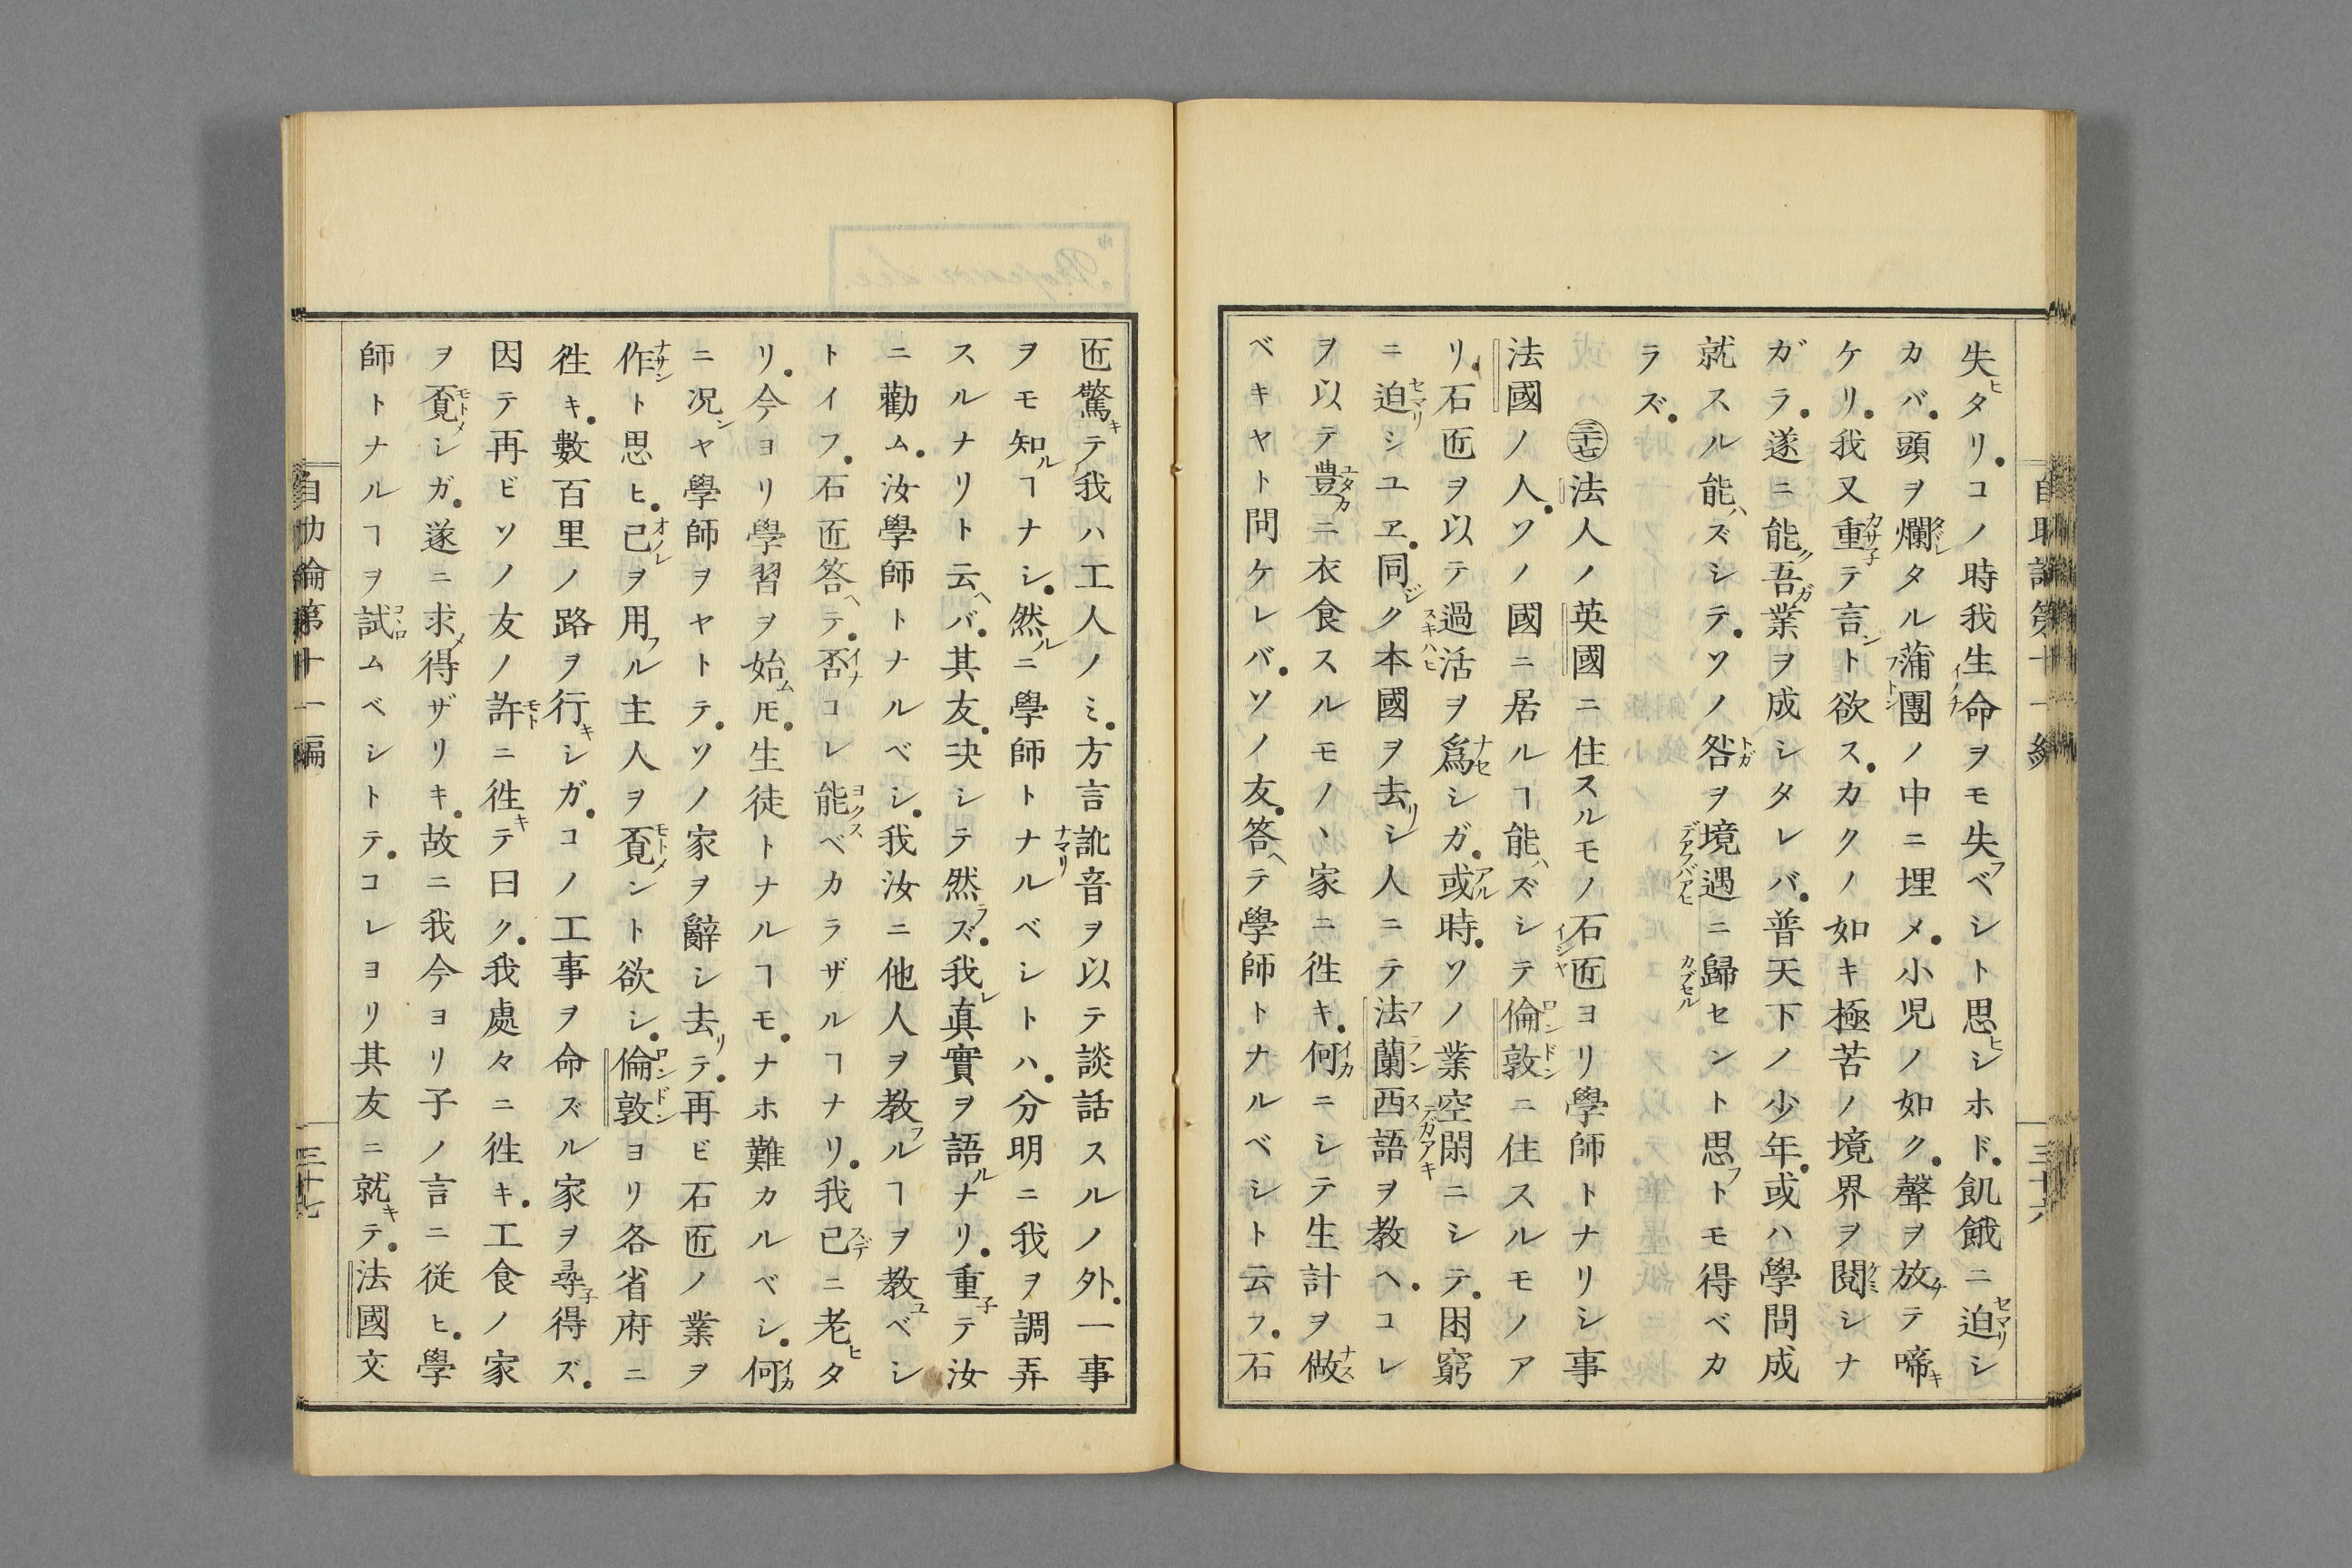 失ヒタリ。コノ時我生命ヲモ失フベシト思ヒシホド。飢餓ニ迫シ
カバ。頭ヲ爛タル蒲團ノ中ニ埋メ。小児ノ如ク。聲ヲ放チテ啼キ
ケリ。我又重子テ言ント欲ス。カクノ如キ極苦ノ境界ヲ閲シナ
ガラ。遂ニ能ク吾ガ業ヲ成シタレバ。普天下ノ少年。或ハ學問成
就スル能ハズシテ。ソノ咎ヲ境遇ニ歸セント思フトモ得ベカ
ラズ。
㊲法人ノ英國ニ住スルモノ石匠ヨリ學師トナリシ事
法國ノ人。ソノ國ニ居ルヿ能ハズシテ倫敦ニ住スルモノア
リ。石匠ヲ以テ過活ヲ爲シガ。或時。ソノ業空閑ニシテ。困窮
ニ迫シユヱ。同ジク本國ヲ去リシ人ニテ法蘭西語ヲ教ヘ。コレ
ヲ以テ豊ニ衣食スルモノヽ家ニ徃キ。何ニシテ生計ヲ做ス
ベキヤト問ケレバ。ソノ友。答ヘテ學師トナルベシト云フ。石
匠驚キテ我ハ工人ノミ。方言訛音ヲ以テ談話スルノ外。一事
ヲモ知ルヿナシ。然ルニ學師トナルベシトハ。分明ニ我ヲ調弄
スルナリト云ヘバ。其友。决シテ然ラズ。我レ真實ヲ語ルナリ。重子テ汝
ニ勸ム。汝學師トナルベシ。我汝ニ他人ヲ教フルヿヲ教ユベシ
トイフ。石匠答ヘテ。否コレ能ベカラザルヿナリ。我已ニ老ヒタ
リ。今ヨリ學習ヲ始ムㇳモ。生徒トナルヿモ。ナホ難カルベシ。何
ニ况ンヤ學師ヲヤトテ。ソノ家ヲ辭シ去リテ。再ビ石匠ノ業ヲ
作ト思ヒ。己ヲ用フル主人ヲ覓ント欲シ。倫敦ヨリ各省府ニ
徃キ。數百里ノ路ヲ行キシガ。コノ工事ヲ命ズル家ヲ尋子得ズ。
因テ再ビソノ友ノ許ニ徃キテ曰ク。我處々ニ徃キ。工食ノ家
ヲ覓シガ。遂ニ求メ得ザリキ。故ニ我今ヨリ子ノ言ニ従ヒ。學
師トナルヿヲ試ムベシトテ。コレヨリ其友ニ就キテ。法國文
自助論第十一編
三十七